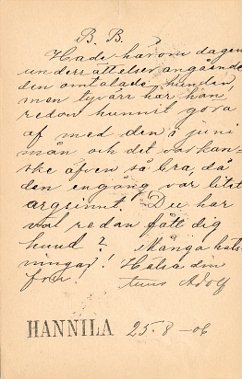 B. B.
Hade härom dagen
underrättelser angående
den omtalade hunden,
men tyvärr har han
redan hunnit göra
af med den i juni
mån och det var kan-
ske äfven så bra, då
den engång var litet
argsinnt. Du har
väl redan fått dig
hund? Många häls
ningar! Helsa din
fru! Adolf
HANNILA 25-8-06